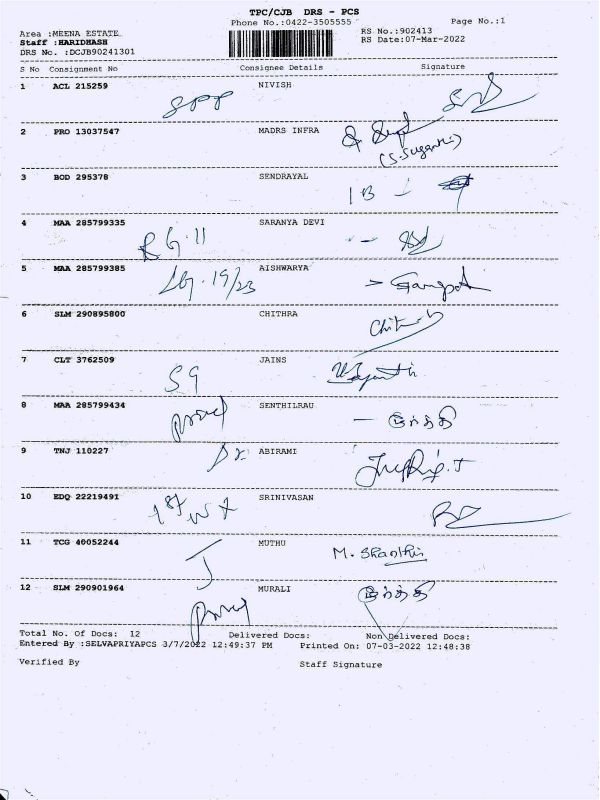 TPC/CJB DRS - PCS
Phone No.:0422-3505555
Page No.:1
Area :MEENA ESTATE
Staff :HARIDHASH
DRS No. :DCJB90241301
RS No.:902413
RS Date:07-Mar-2022
S No Consignment No Consignee Details Signature
1 ACL 215259 NIVISH
SPP
2 PRO 13037547 MADRS INFRA
(S.Suganthi)
3 BOD 295378 SENDRAYAL
1B
4 MAA 285799335 SARANYA DEVI
RG.11
5 MAA 285799385 AISHWARYA
19/23 Ganpat
6 SLM 290895800 CHITHRA
7 CLT 3762509 JAINS
SG
8 MAA 285799434 SENTHILRAU
9 TNJ 110227 ABIRAMI
10 EDQ 22219491 SRINIVASAN
1st
11 TCG 40052244 MUTHU
J M. Shanthi
12 SLM 290901964 MURALI
Total No. Of Docs: 12 Delivered Docs: Non Delivered Docs:
Entered By :SELVAPRIYAPCS 3/7/2022 12:49:37 PM Printed On: 07-03-2022 12:48:38
Verified By Staff Signature